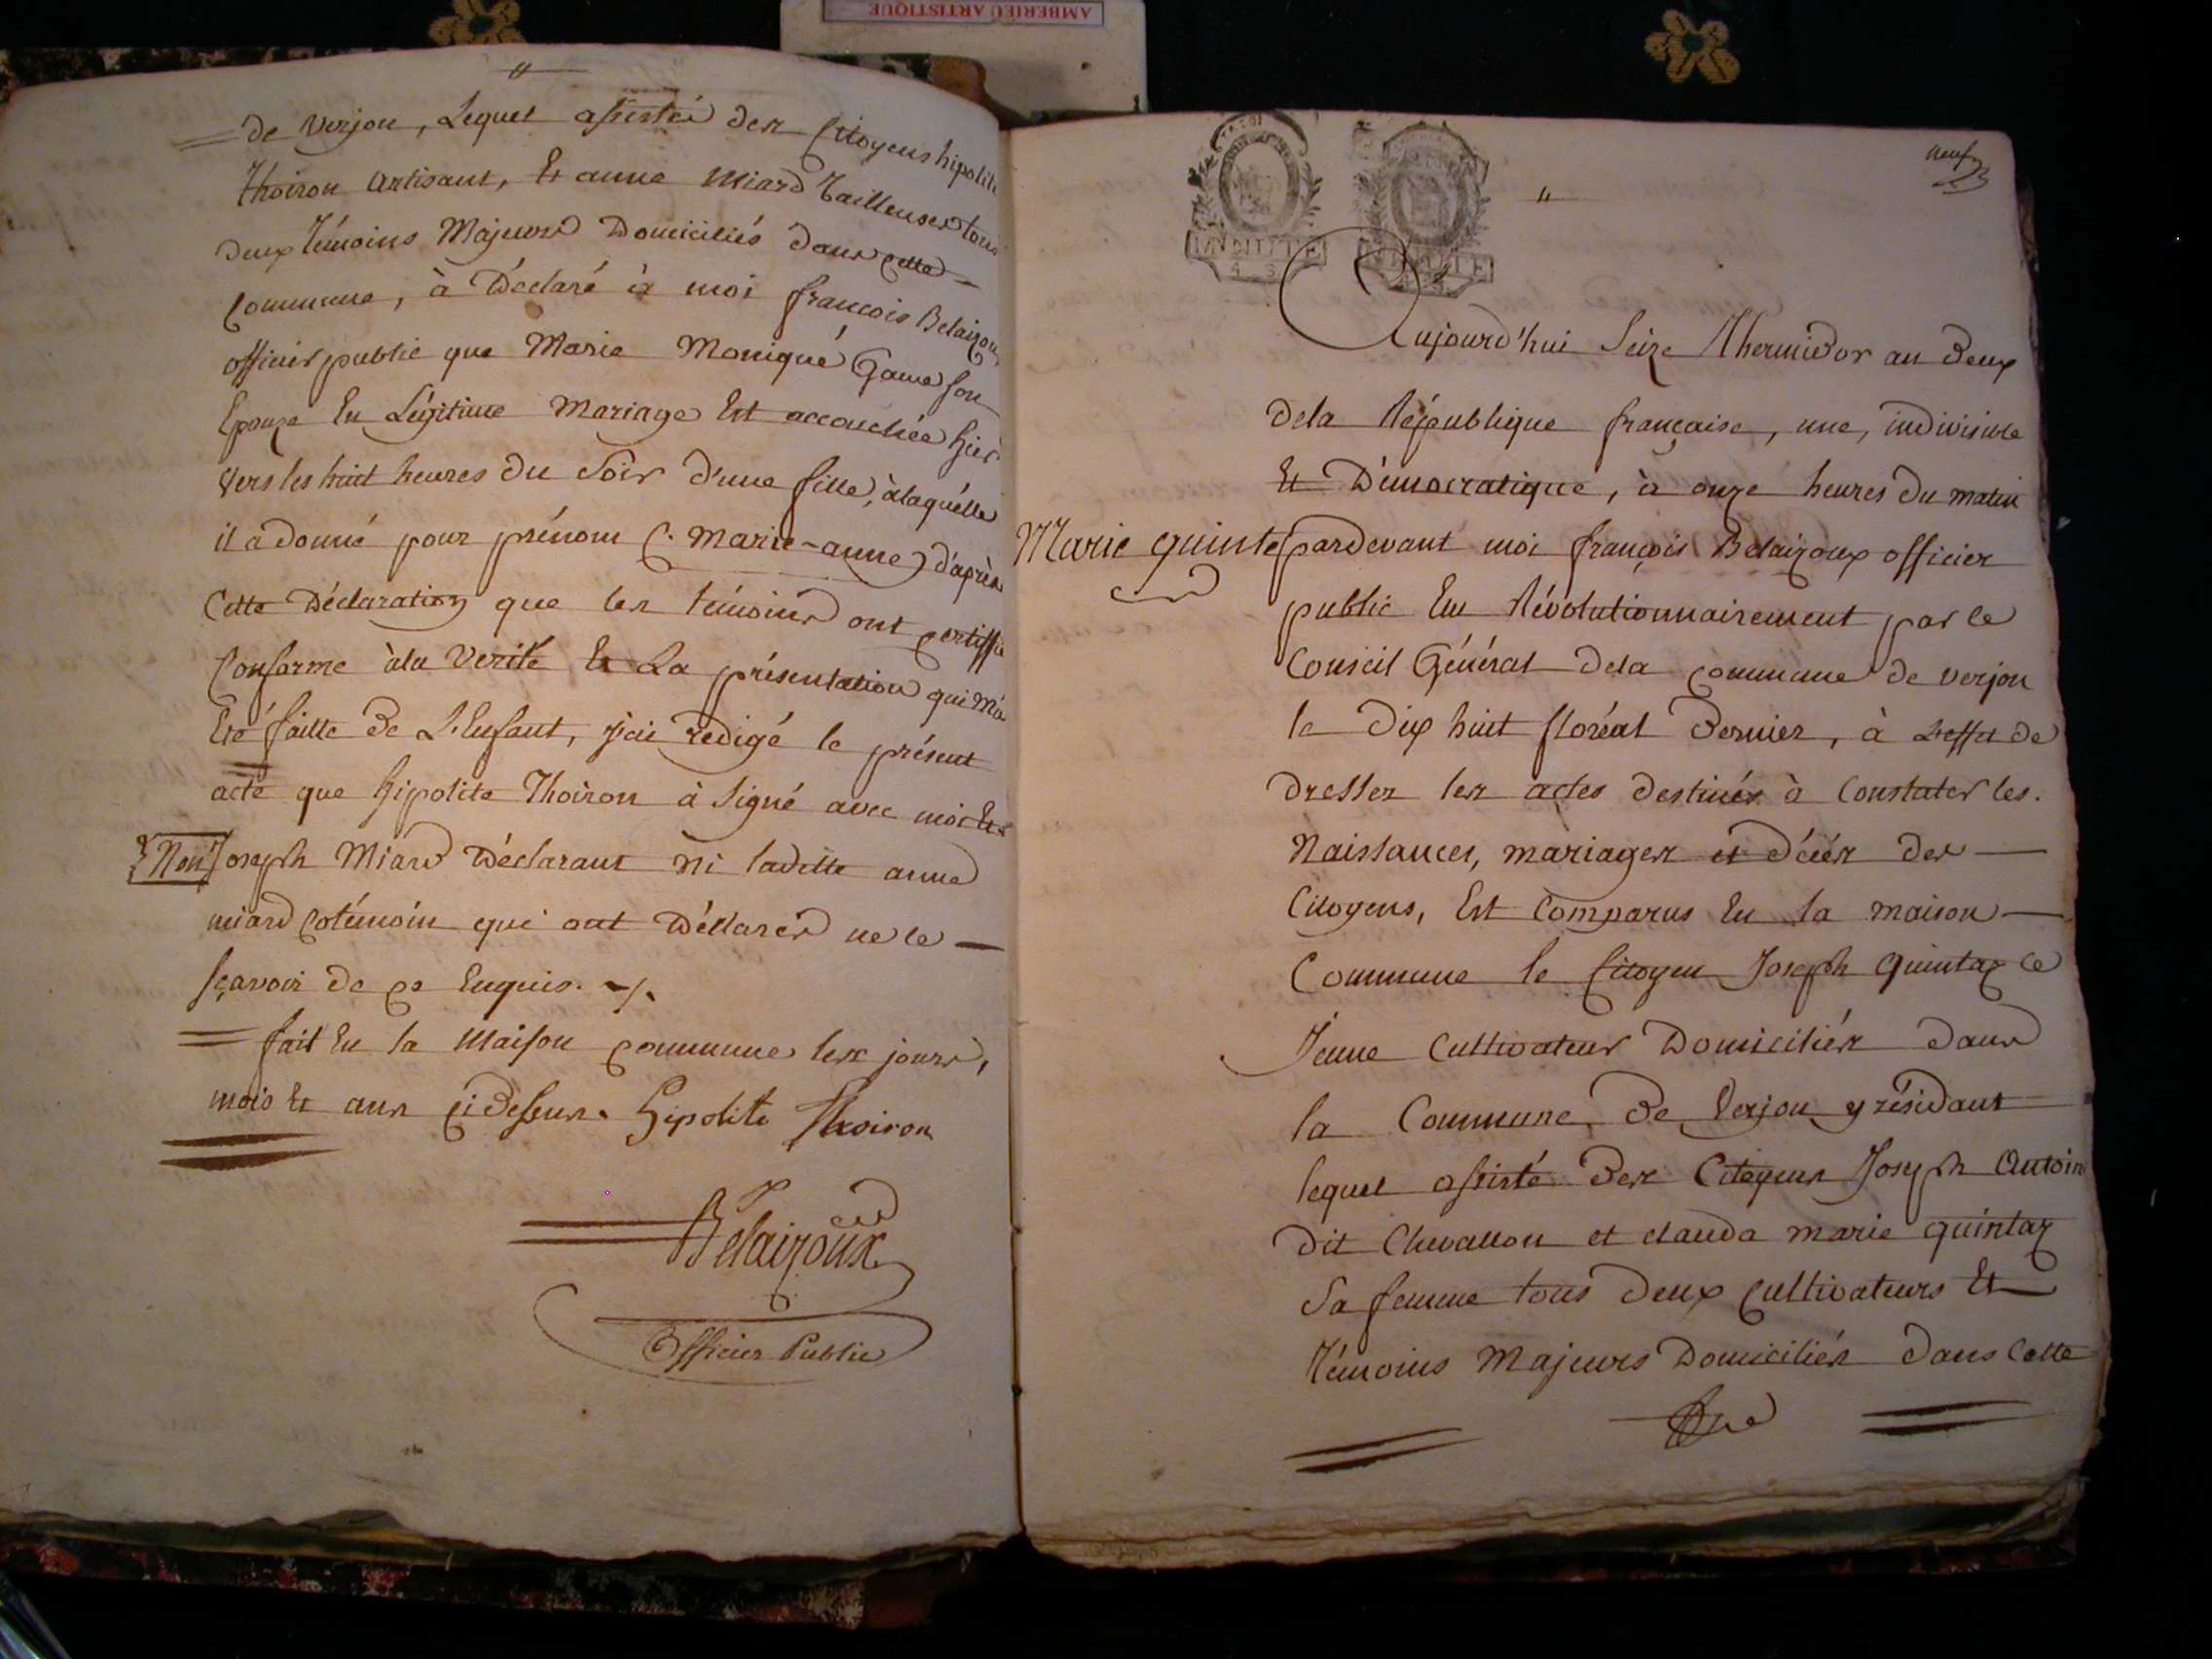 AMBERIEU ARTISTIQUE
de verjou, Lequel assisté des Citoyens hipolite
Thoiron artisant, Et anne Miard Tailleuses tous
deux Témoins Majeurs Domiciliés dans cette
Commune, à Déclaré à moi francois Belairoux
officier public que Marie Monique Game son
Epouze En Légitime Mariage Est accouchée hier
Vers les huit heures du Soir d'une fille, àlaquélle
il a donné pour prénom C. Marie-anne, d'après
Cette Déclaration que les témoins ont certiffié
Conforme àla Verité Et La présentation qui m'a
Eté faitte de L'Enfant, j'ai redigé le présent
acte que hipolite Thoiron à signé avec moi Et
Non Joseph Miard Déclarant Ni ladette anne
miard Cotémoin qui ont Déclarés ne le
sçavoir de ce Enquis. ./.
fait En la Maison commune les jours,
mois Et ans ci dessus. hipolite Thoiron
Belairoux
Officier Public
neuf
MINUTE
4. S.
MINUTE
Aujourd'hui Seize Thermidor an deux
dela République française, une, indivisible
Et Démocratique, à onze heures du matin
Marie quinte
pardevant moi françois Belairoux officier
public Elu Révolutionnairement par le
Conseil Général dela commune de verjou
le dix huit floréal dernier, à L'effet de
dresser les actes destinés à Constater les.
Naissances, mariages et décés des
Citoyens, Est Comparus En la maison
Commune le Citoyen Joseph quintaz le
Jeune Cultivateur Domiciliés dans
la Commune de Verjou y résidant
lequel assisté des Citoyens Joseph Antoine
dit Chevallon et clauda marie quintaz
Sa femme tous deux Cultivateurs Et
Témoins Majeurs Domiciliés dans Cette